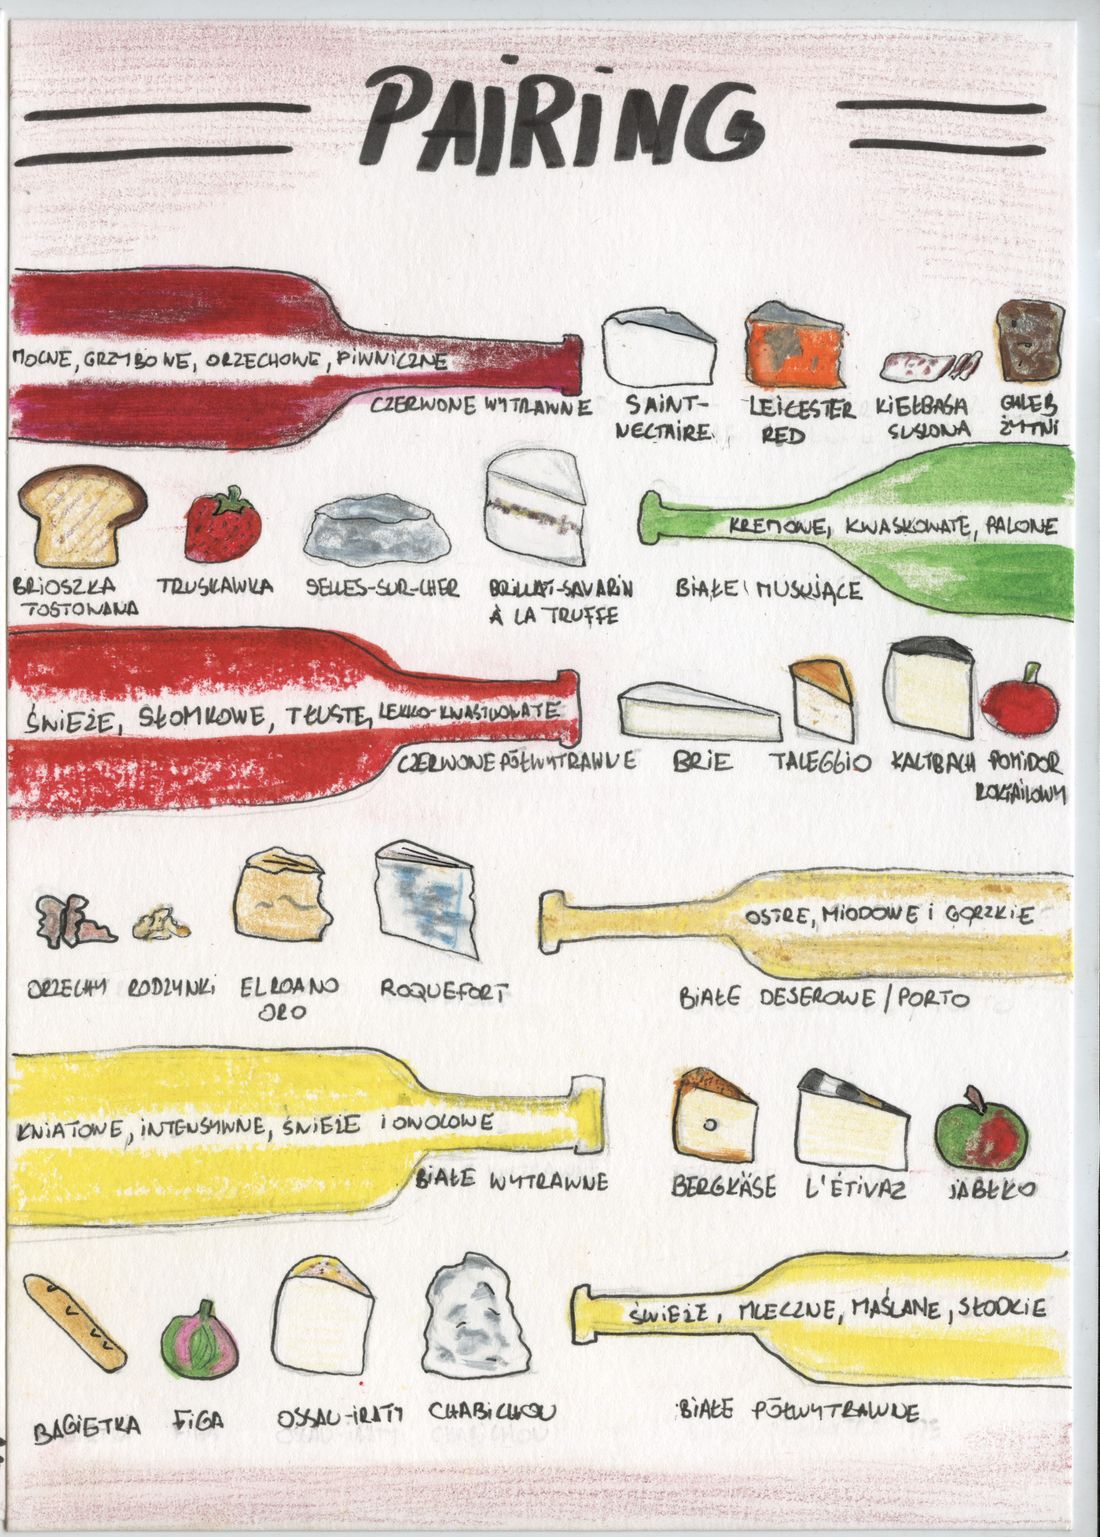 PAIRING
MOCNE, GRZYBOWE, ORZECHOWE, PIWNICZNE
CZERWONE WYTRAWNE
SAINT-
NECTAIRE
LEICESTER
RED
KIEŁBASA
SUSZONA
CHLEB
ŻYTNI
BRIOSZKA
TOSTOWANA
TRUSKAWKA
SELLES-SUR-CHER
BRILLAT-SAVARIN
À LA TRUFFE
KREMOWE, KWASKOWATE, PALONE
BIAŁE MUSUJĄCE
ŚWIEŻE, SŁOMKOWE, TŁUSTE, LEKKO-KWASKOWATE
CZERWONE PÓŁWYTRAWNE
BRIE
TALEGGIO
KALTBACH
POMIDOR
KOKTAJLOWY
ORZECHY
RODZYNKI
EL ROANO
ORO
ROQUEFORT
OSTRE, MIODOWE I GORZKIE
BIAŁE DESEROWE/PORTO
KWIATOWE, INTENSYWNE, ŚWIEŻE I OWOCOWE
BIAŁE WYTRAWNE
BERGKÄSE
L'ÉTIVAZ
JABŁKO
BAGIETKA
FIGA
OSSAU-IRATY
CHABICHOU
ŚWIEŻE, MLECZNE, MAŚLANE, SŁODKIE
BIAŁE PÓŁWYTRAWNE